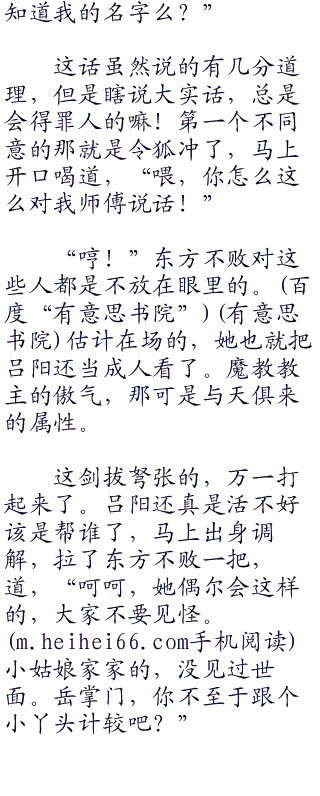 知道我的名字么？”
这话虽然说的有几分道
理，但是瞎说大实话，总是
会得罪人的嘛！第一个不同
意的那就是令狐冲了，马上
开口喝道，“喂，你怎么这
么对我师傅说话！”
“哼！”东方不败对这
些人都是不放在眼里的。(百
度“有意思书院”)(有意思
书院)估计在场的，她也就把
吕阳还当成人看了。魔教教
主的傲气，那可是与天俱来
的属性。
这剑拔弩张的，万一打
起来了。吕阳还真是活不好
该是帮谁了，马上出身调
解，拉了东方不败一把，
道，“呵呵，她偶尔会这样
的，大家不要见怪。
(m.heihei66.com手机阅读)
小姑娘家家的，没见过世
面。岳掌门，你不至于跟个
小丫头计较吧？”